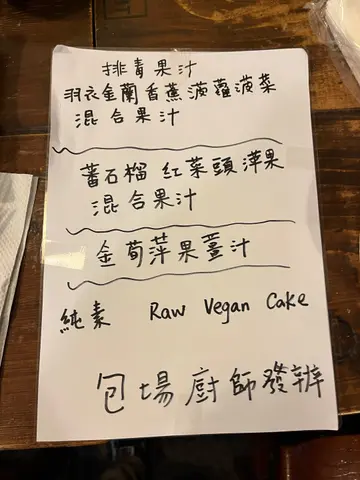 排毒果汁
羽衣金蘭香蕉菠蘿菠菜
混合果汁
蕃石榴 紅菜頭 蘋果
混合果汁
金荀苹果薑汁
純素 Raw Vegan Cake
包場廚師發辦